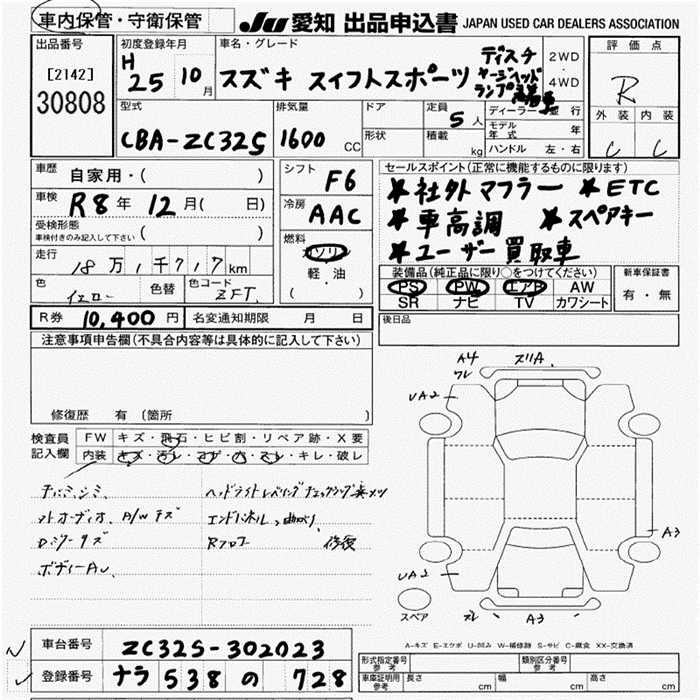 車内保管・守衛保管
JU 愛知 出品申込書 JAPAN USED CAR DEALERS ASSOCIATION
出品番号
[2142]
30808
初度登録年月
H
25 10月
車名・グレード
スズキ スイフトスポーツ
ディスチャージヘッドランプ
2WD
・
4WD
評価点
R
外装 内装
C C
型式
CBA-ZC32S
排気量
1600 CC
ドア
形状
定員
5人
積載
kg
ディーラー 並 行
モデル年式 年
ハンドル 左・右
車歴
自家用・( )
車検
R8年 12月( 日)
受検形態
車検付きのみ記入して下さい ( )
走行
18万1千717km
色
イエロー
色替
色コード
ZFT
シフト
F6
冷房
AAC
燃料
ガソリン
軽・油
( )
セールスポイント(正常に機能するものに限ります)
★社外マフラー ★ETC
★車高調 ★スペアキー
★ユーザー買取車
装備品(純正品に限り○をつけてください)
PS PW エアB AW
SR ナビ TV カワシート
新車保証書
有・無
R券 10,400円
名変通知期限 月 日
後日品
注意事項申告欄(不具合内容等は具体的に記入して下さい)
修復歴 有 (箇所 )
検査員
記入欄
FW キズ・飛石・ヒビ割・リペア跡・X要
内装 キズ・汚レ・コゲ・穴・スレ・キレ・破レ
ヘッドライトレベリング
オーディオ A/Wキズ
エンドパネル 曲がり
Dミラーキズ
Rフロア 修復
ボディーAU
A4
ワレ
スリA
UA2
A3
UA2
スペア
ズレ
A3
A-キズ E-エクボ U-凹み W-補修跡 S-サビ C-腐食 XX-交換済
車台番号 ZC32S-302023
登録番号 ナラ 538 の 728
形式指定番号
参考
類別区分番号
参考
車庫証明用
参考
長さ cm
幅 cm
高さ cm